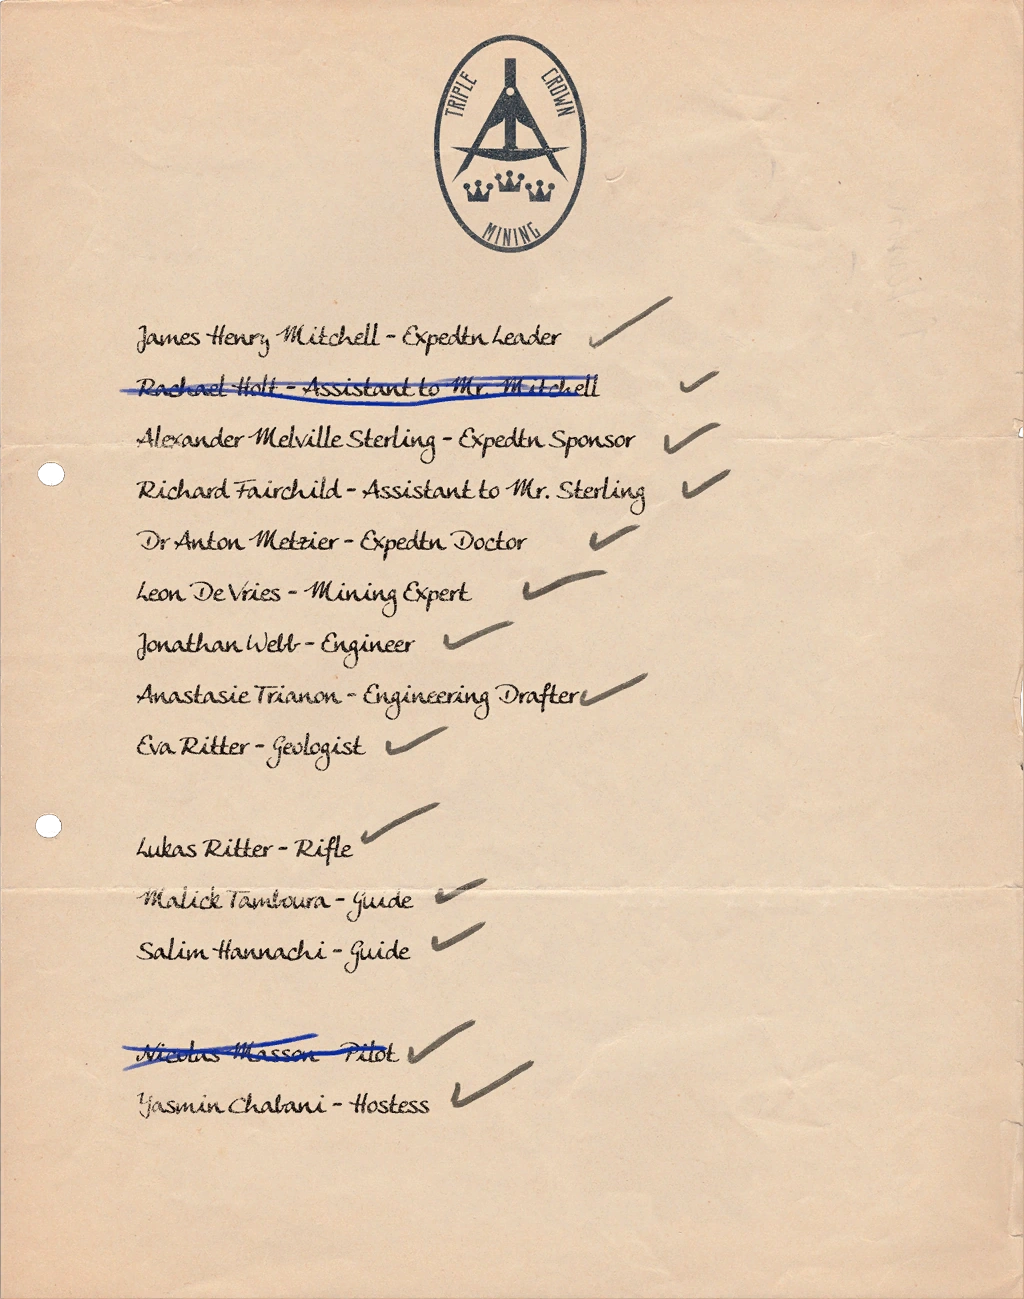 TRIPLE CROWN
MINING
James Henry Mitchell - Expedtn Leader
Rachael Holt - Assistant to Mr. Mitchell
Alexander Melville Sterling - Expedtn Sponsor
Richard Fairchild - Assistant to Mr. Sterling
Dr Anton Metzier - Expedtn Doctor
Leon De Vries - Mining Expert
Jonathan Webb - Engineer
Anastasie Trianon - Engineering Drafter
Eva Ritter - Geologist
Lukas Ritter - Rifle
Malick Tamboura - Guide
Salim Hannachi - Guide
Nicolas Masson - Pilot
Yasmin Chabani - Hostess